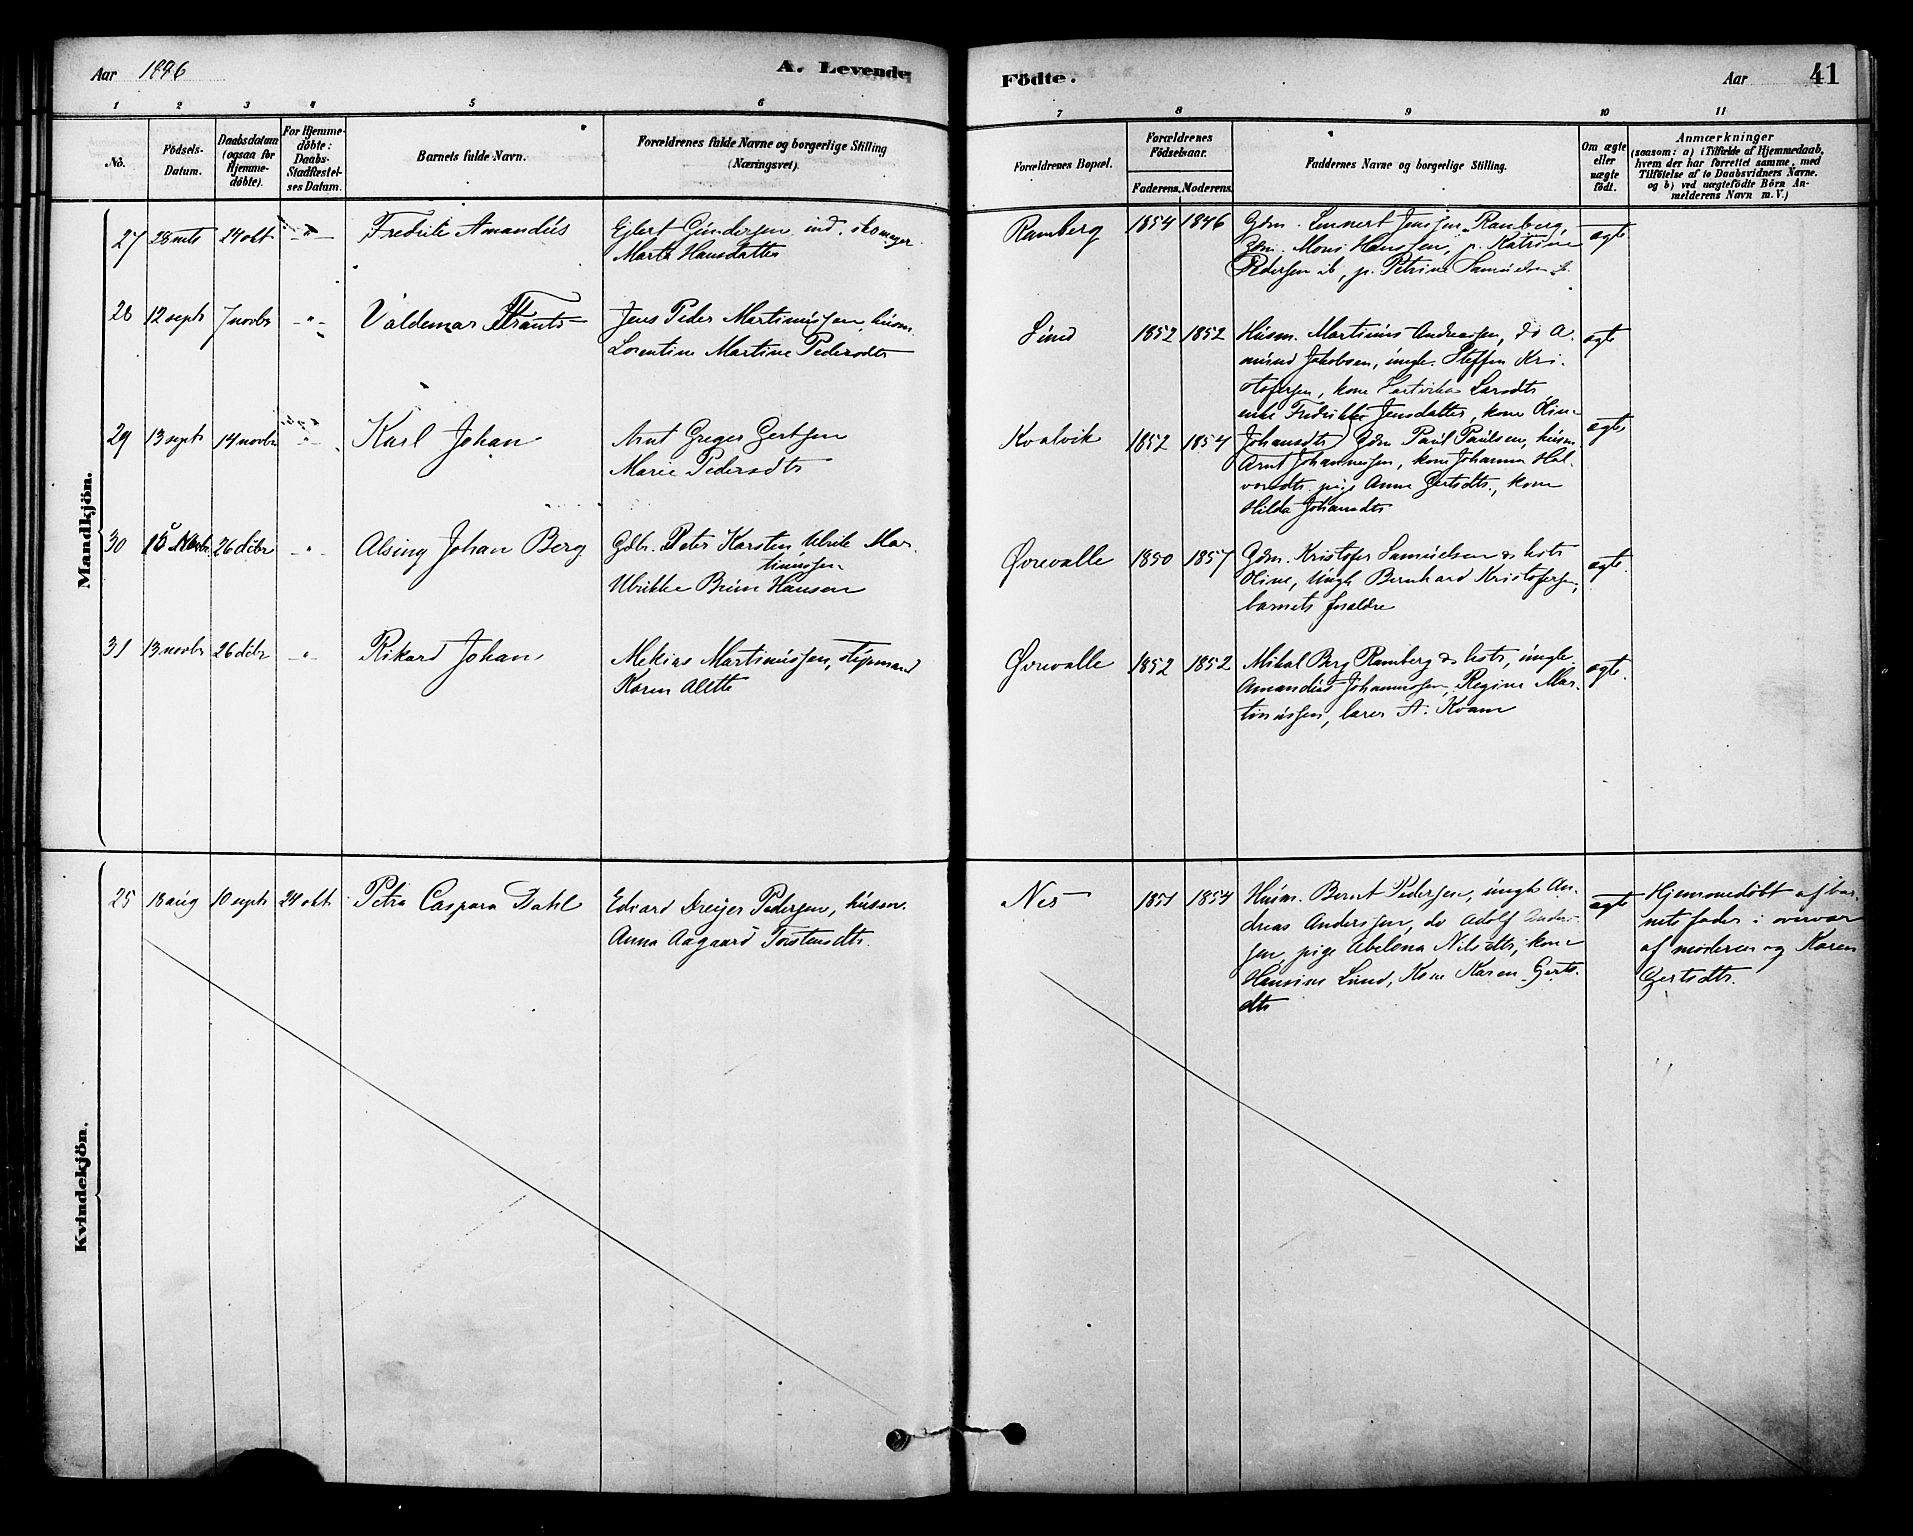 Aar 1886
A. Levende
Födte.
Aar 41
1 2 3 4 5 6 7 8 9 10 11
No.
Födsels-Datum.
Daabsdatum (ogsaa for Hjemmedöbte).
For Hjemmedöbte: Daabs-Stadfæstelses Datum.
Barnets fulde Navn.
Forældrenes fulde Navne og borgerlige Stilling (Næringsvei).
Forældrenes Bopæl.
Forældrenes Födselsaar.
Faderens. Moderens.
Faddernes Navne og borgerlige Stilling.
Om ægte eller uægte födt.
Anmærkninger
(saasom: a) i Tilfælde af Hjemmedaab, hvem der har forrettet samme, med Tilföielse af to Daabsvidners Navne, og b) ved uægtefödte Börn Anmelderens Navn m. V.)
Mandkjön.
27 28 24 okt. Fredrik Amandus
Ejlert Gundersen ind.
Marta Hansdatter
Ramberg 1854 1846
Gdm. Lennert Jensen Ramberg,
Gdm. Mons Hanssen, p. Katrine
Pedersen ib, p. Petrine Samuelsen
ægte
28 12 septr 7 novbr Valdemar Frants
Jens Peder Martinussen, husm
Lorentine Martine Pedersdtr
Sund 1852 1852
Husm. Martinus Andreassen, do A
mund Jakobsen, ungk. Steffen Kri-
stofersen, kone Larsdtr
enke Fredrikke Jensdatter, kone Olin
ægte
29 13 septr 14 novbr Karl Johan
Arnt Greger Gertsen
Marie Pedersdtr
Kvalvik 1852 1854
Johansdtr Gdm Paul Paulsen, husm
Arnt Johannessen, kone Johanna Hal-
vorsdtr. pige Anna Gertsdtr., kone
Hilda Johansdtr
ægte
30 Novbr. 26 dcbr Alsing Johan Berg
Gdbr. Peter Karsten Ulrik Mar-
tinussen
Ulrikke Hansen
Øvrevalle 1850 1857
Gdm. Kristofer Samuelsen & hstr
Oline, Ungk Bernhard Kristofersen,
barnets foreldre
ægte.
31 13 novbr 26 dcbr Rikard Johan
Mekias Martinussen, styrmand
Karen Alette
Øvrevalle 1852 1852
Mikal Berg Ramberg & hstr, ungk.
Amandus Johannessen, Regine Mar-
tinussen, lærer A. Kvam
ægte.
Kvindekjön.
25 18 aug 10 septr 24 okt. Petra Caspara Dahl
Edvard Dreijer Pedersen, husm.
Anna Aagaard Torstensdtr.
Nes 1851 1854
Husm. Bernt Pedersen, ungk An-
dreas Anderssen, do Adolf Ander-
sen, pige Abelona Nilsdtr, kone
Hansine Lund, Kone Karen Gerts-
dtr
ægte
Hjemmedøbt af bar-
nets fader i overvær
af moderen og Karen
Gertsdtr.